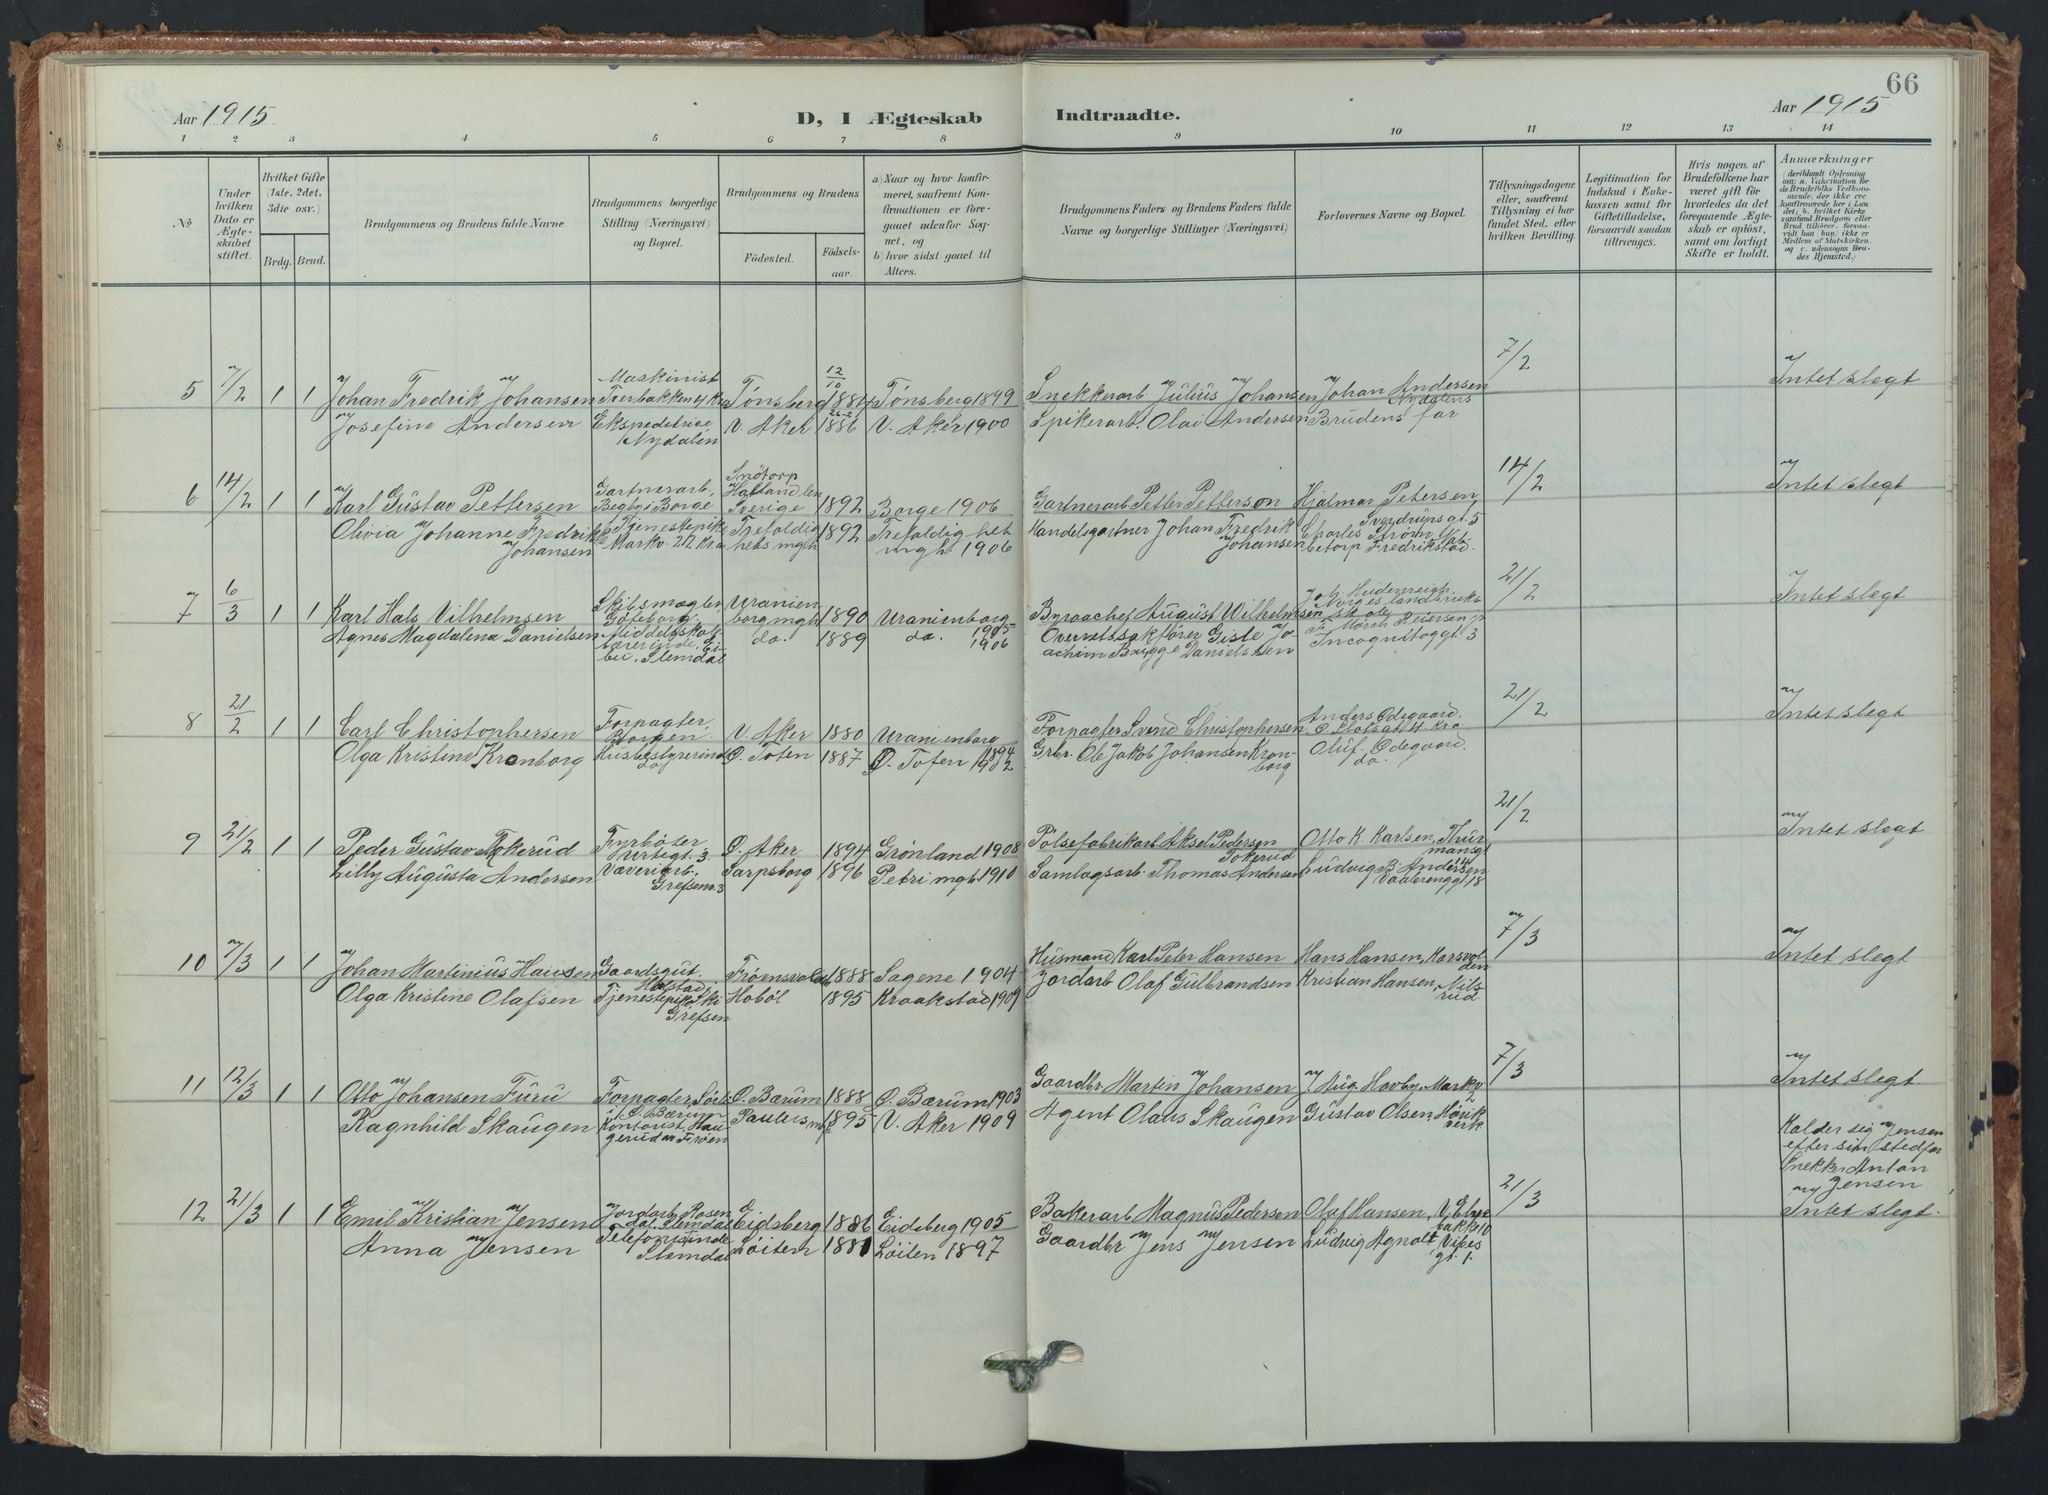 66
Aar 1915.
D, I Ægteskab
Indtraadte.
Aar 1915
1 2 3 4 5 6 7 8 9 10 11 12 13 14
No
Under hvilken Dato er Ægteskabet stiftet.
Hvilket Gifte (1ste, 2det, 3die osv.)
Brdg. Brud.
Brudgommens og Brudens fulde Navne
Brudgommens borgerlige Stilling (Næringsvei) og Bopæl.
Brudgommens og Brudens
Fødested.
Fødselsaar.
a) Naar og hvor konfirmeret, saafremt Konfirmationen er foregaaet udenfor Sognet, og
b) hvor sidst gaaet til Alters.
Brudgommens Faders og Brudens Faders fulde Navne og borgerlige Stillinger (Næringsvei)
Forlovernes Navne og Bopæl.
Tillysningsdagene eller, saafremt Tillysning ei har fundet Sted, efter hvilken Bevilling.
Legitimation for Indskud i Enkekassen samt for Giftetilladelse, forsaavidt saadan tiltrænges.
Hvis nogen af Brudefolkene har været gift før hvorledes da det foregaaende Ægteskab er opløst, samt om lovligt Skifte er holdt.
Anmærkninger
(deriblandt Oplysning om: a. Vakcination for de Brudefolks Vedkommende, der ikke ere konfirmerede her i Landet; b. hvilket Kirkesamfund Brudgom eller Brud tilhører, forsaavidt han (hun) ikke er Medlem af Statskirken, og c. udensogns Brudes Hjemsted.)
5 7/2 1 1 Johan Fredrik Johansen Maskinist Tverbakken 4 Kra Tønsberg 12/10 1884 Tønsberg 1899 Snekkerarb Julius Johansen Johan Andersen Nydalens 7/2 Intet slegt
Josefine Andersen Ekspeditrice Nydalen V. Aker 26-2 1886 V. Aker 1900 Spikerarb. Olai Andersen Brudens far
6 14/2 1 1 Karl Gustav Pettersen Gartnerarb. Begby i Borge Snötorp Halland len Sverige 1892 Borge 1906 Gartnerarb Petter Petterson Hjalmar Petersen, Sverdrupsgt. 5 14/2 Intet slegt
Olivia Johanne Fredrikke Johansen Tjenestepike Markv. Kra Trefoldighets mgh 1892 Trefoldighet mght 1906 Handelsgartner Johan Fredrik Johansen Charles Strøm Fredrikstad.
7 6/3 1 1 Karl Hals Vilhelmsen Skibsmægler, Göteborg. Uranienborg mght 1890 Uranienborg 1905 Byraachef August Wilhelmsen Heidenreich, Norges landbruks skole 21/2 Intet slegt
Agnes Magdalena Danielsen Middelskolelærerinde, Slemdal do. 1889 do. 1906 Overretssakfører Gisle Joachim Brygge Danielsen F. Mørch Reiersen Incognitoggt. 3
8 21/2 1 1 Carl Christophersen Forpagter, Borgen V. Aker 1880 Uranienborg 1894 Forpagter Svend Christophersen Anders Ødegaard. Ø. Slotsgt 4 Kra 21/2 Intet slegt
Olga Kristine Kronborg Husbestyrerinde do Ø. Toten 1887 Ø. Toten 1902 Grbr. Ole Jakob Johansen Kronborg Oluf Ødegaard. do.
9 21/2 1 1 Peder Gustav Tokerud Fyrbøter gt. 3. Ø. Aker 1894 Grønland 1908 Pølsefabrikarb Aksel Pedersen Tokerud Otto K. Karlsen, Thurmansgt 14 21/2 Intet slegt
Lilly Augusta Andersen Væveriarb. Grefsenv. 3 Sarpsborg 1896 Petri mght 1910 Samlagsarb. Thomas Andersen Ludvig B. Andersen Vaalerenggt. 18
10 7/3 1 1 Johan Martinius Hansen Gaardsgut. Hofstad, Ski Frøensvolden 1888 Sagene 1904 Husmand Karl Peter Hansen Hans Hansen, Korsvolden 7/3 Intet slegt
Olga Kristine Olafsen Tjenestepike Grefsen Hobøl 1895 Kraakstad 1909 Jordarb Olaf Gulbrandsen Kristian Hansen, Nilsrud
11 12/3 1 1 Otto Johansen Furu Forpagter Ø. Bærum Ø. Bærum 1888 Ø. Bærum 1903 Gaardbr Martin Johansen J. Aug. Hovby, Markv 2 7/3 Intet slegt
Ragnhild Skaugen Kontorist, Haugerud Frøen Paulus mgh 1895 V. Aker 1909 Agent Olaus Skaugen Gustav Olsen
Kalder sig Jensen efter sin stedfar Snekker Anton Jensen
12 21/3 1 1 Emil Kristian Jensen Jordarb. Rosendal, Slemdal Eidsberg 1886 Eidsberg 1905 Bakerarb Magnus Pedersen Olaf Hansen, V. Elvebakke 10 21/3 Intet slegt.
Anna Jensen Telefonistinde Slemdal Løiten 1881 Løiten 1897 Gaardbr Jens Jensen Ludvig Agnalt, Vibesgt. 1.